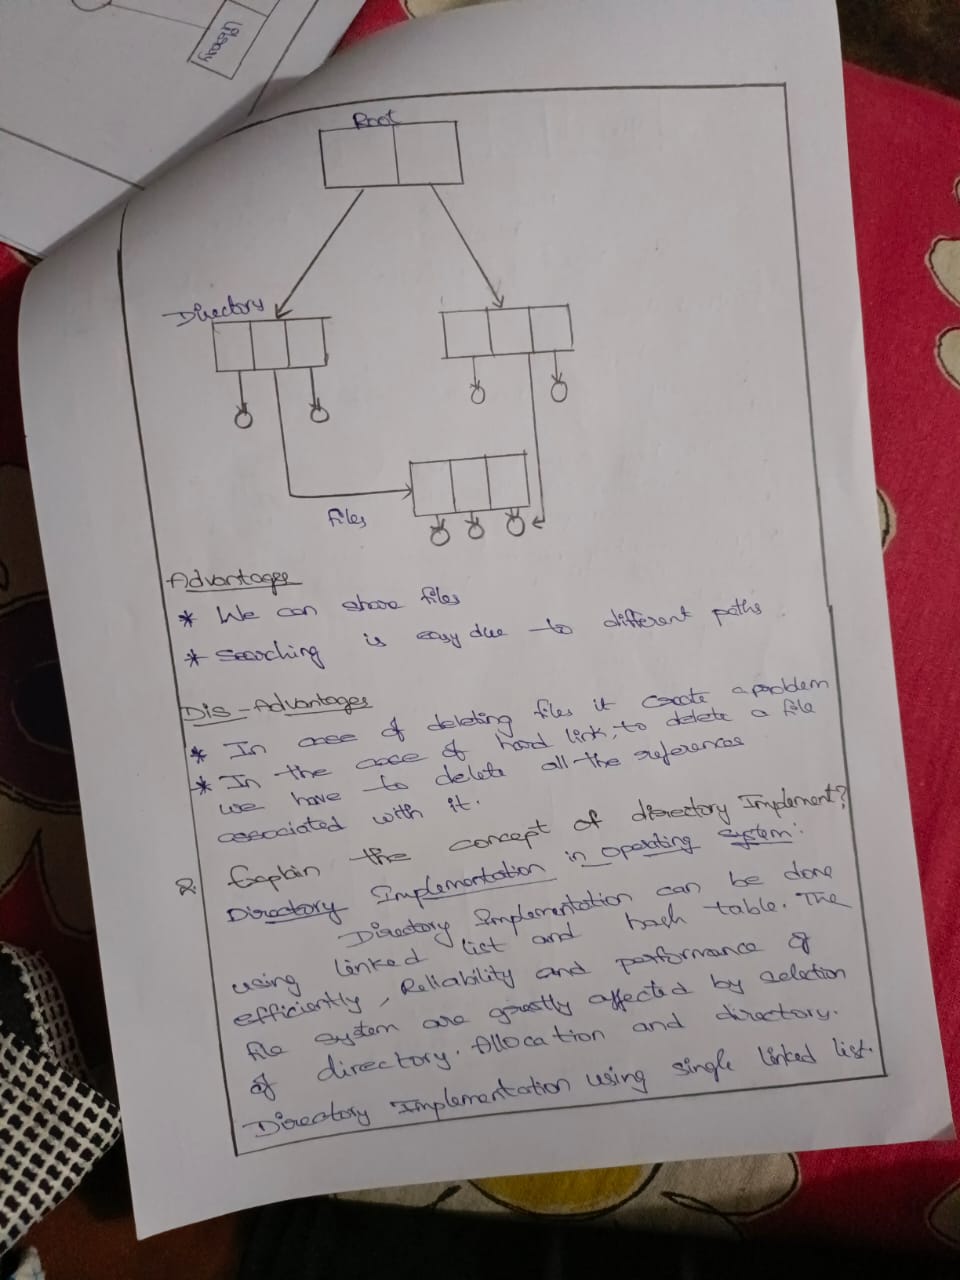 Library
Root
Directory
files
Advantages
* We can share files
* Searching is easy due to different paths
Dis-Advantages
* In case of deleting files it create a problem
* In the case of hard link, to delete a file
we have to delete all the references
associated with it.
2. Explain the concept of directory Implement?
Directory Implementation in operating system:
Directory Implementation can be done
using linked list and hash table. The
efficiently, Reliability and performance of
file system are greatly affected by selection
of directory. Allocation and directory.
Directory Implementation using single linked list.